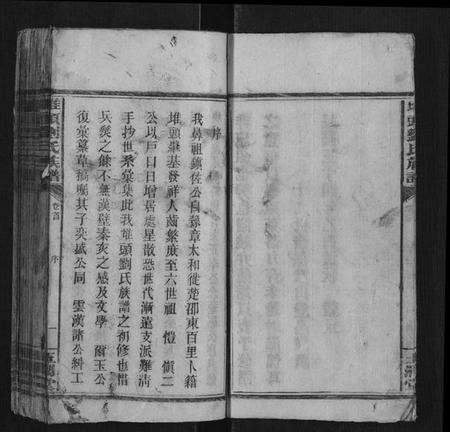 序
我鼻祖鎮佐公自豫章太和徙楚邵東百里卜籍
堆頭肇基發祥人齒繁庶至六世祖 愷 愼二
公以戶口日增居處星散恐世代漸遠支派難清
手抄世系彙集此我堆頭劉氏族譜之初修也惜
兵燹之餘不無漢壁秦亥之感及文學 爾玉公
復彙纂草稿囑其子奕盛公同 雲漢諸公糾工
堆頭劉氏族譜
卷首
序
一
堆頭劉氏族譜